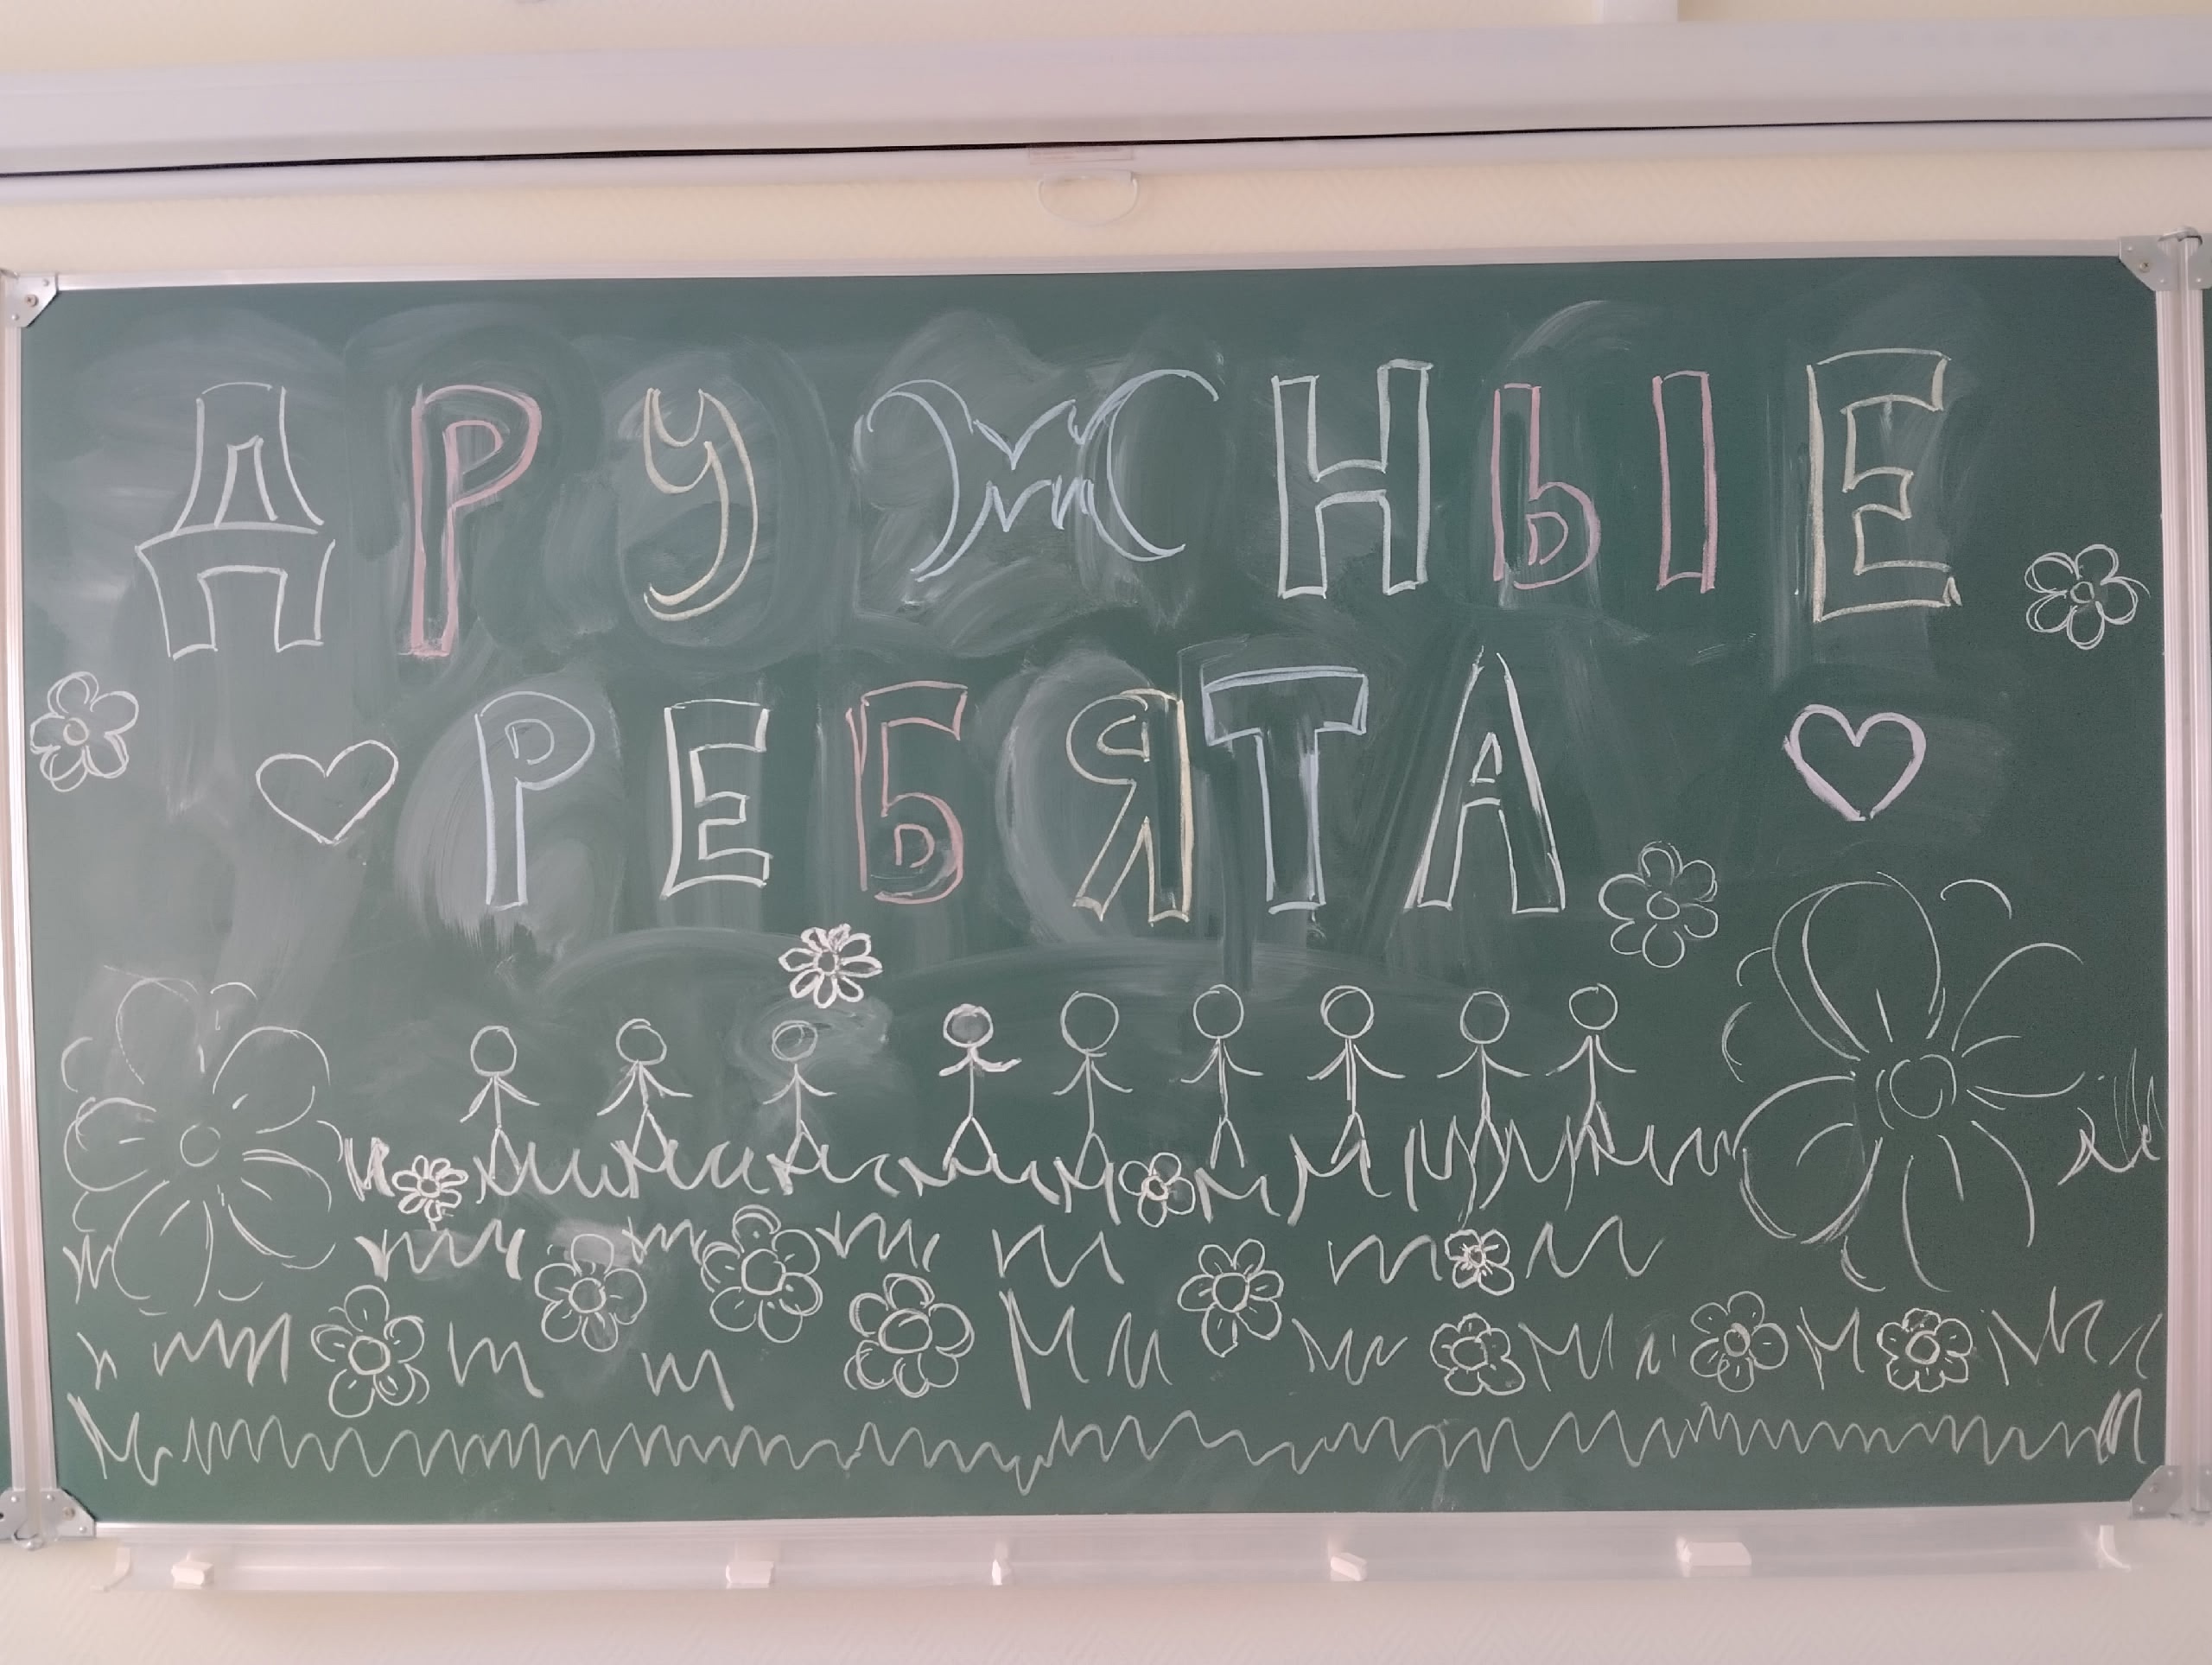 ДРУЖНЫЕ
РЕБЯТА